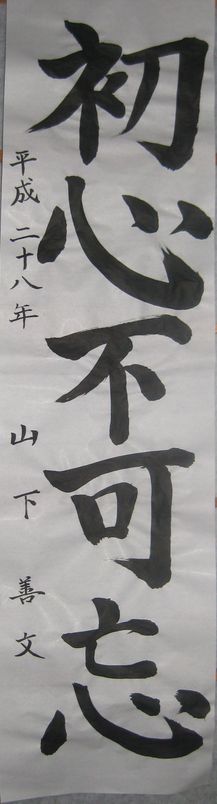 初心不可忘
平成二十八年 山下善文